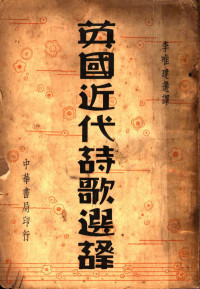 李唯建選譯
英國近代詩歌選譯
中華書局印行